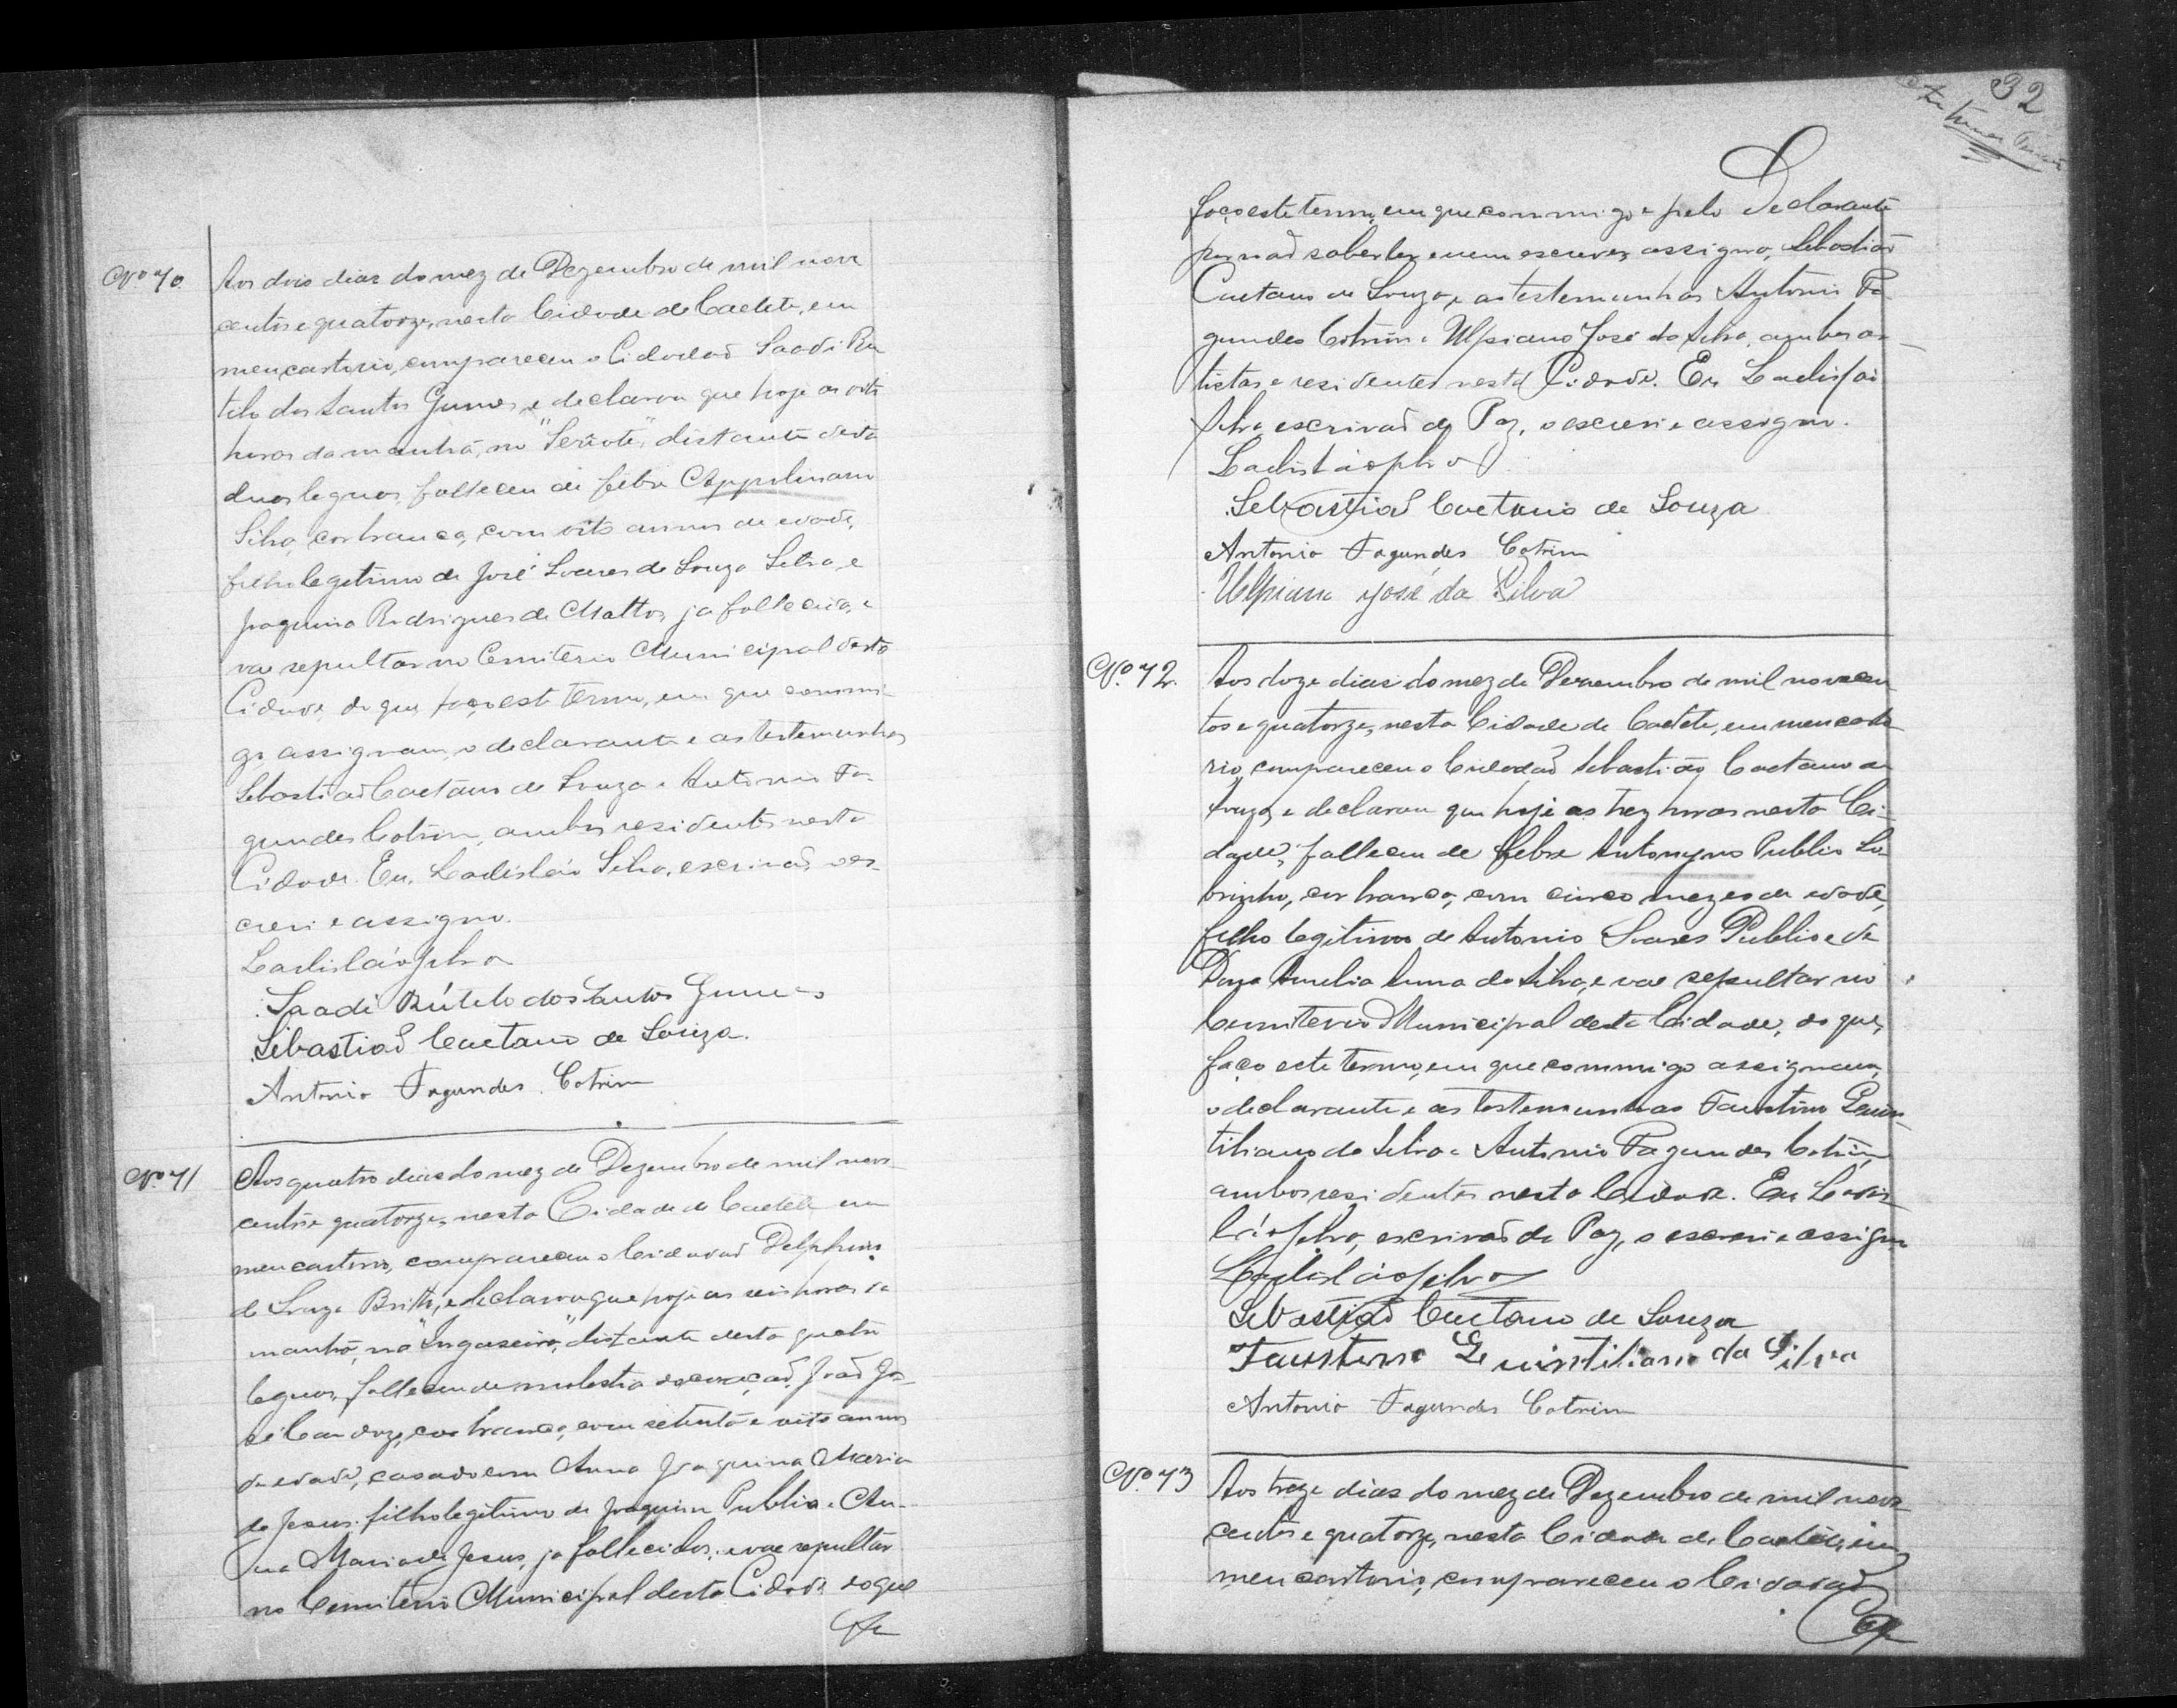 Nº 70.
Aos dois dias do mez de Dezembro de mil nove
centos e quatorze, nesta Cidade de Caeteté, em
meu cartorio, compareceu o Cidadaõ Saadi Ru
tilo dos Santos Gumes, e declarou que hoje as oito
horas da manhã, no "Serrote", distante desta
duas leguas, falleceu de febre Appolinario
Silva, cor branca, com oito annos de edade,
filho legitimo de José Soares de Souza Silva, e
Joaquina Rodrigues de Mattos, ja fallecida, e
vae sepultar no Cemiterio Municipal desta
Cidade, do que, faço este termo, em que commi
go assignam, o declarante e as testemunhas
Sebastiaõ Caetano de Souza e Antonio Fa
gundes Cotrim, ambos residentes nesta
Cidade. Eu, Ladisláo Silva, escrivaõ, o es-
crevi e assigno.
Ladisláo Silva
Saadi Rútilo dos Santos Gumes
Sebastiaõ Caetano de Souza.
Antonio Fagundes Cotrim
Nº 71
Aos quatro dias do mez de Dezembro de mil nove
centos e quatorze, nesta Cidade de Caeteté em
meu cartorio, compareceu o Cidadaõ Delphino
de Souza Britto, e declarou que hoje as seis horas da
manhã, no "Ingaseiro", distante desta quatro
leguas, falleceu de molestia do coraçaõ, Joaõ Jo-
sé Cardozo, cor branca, com setenta e oito annos
de edade, casado com Anna Joaquina Maria
de Jesus, filho legitimo de Joaquim Publio e An-
na Maria de Jesus, ja fallecidos, e vae sepultar
no Cemiterio Municipal desta Cidade do que
32
Declarante
faço este termo, em que commigo e pelo
por naõ saber ler e nem escrever, assigno, Sebastiaõ
Caetano de Souza, e as testemunhas Antonio Fa-
gundes Cotrim e Ulpiano José da Silva, ambos ar-
tistas e residentes nesta Cidade. Eu Ladisláo
Silva, escrivaõ de Paz, o escrevi e assigno.
Ladisláo Silva
Sebastiaõ Caetano de Souza
Antonio Fagundes Cotrim
Ulpiano José da Silva
Nº 72.
Aos doze dias do mez de Dezembro de mil novecen
tos e quatorze, nesta Cidade de Caeteté, em meu carto
rio, compareceu o Cidadaõ Sebastião Caetano de
Souza, e declarou que hoje as trez horas nesta Ci-
dade, falleceu de febre Antonyno Publio So-
brinho, cor branca, com cinco mezes de edade,
filho legitimo de Antonio Soares Publio e de
Dona Amelia Anna da Silva, e vae sepultar no
Cemiterio Municipal desta Cidade, do que,
faço este termo, em que commigo assignam,
o declarante e as testemunhas Faustino Quin-
tiliano da Silva e Antonio Fagundes Cotrim,
ambos residentes nesta Cidade. Eu Ladis
láo Silva, escrivaõ de Paz, o escrevi e assigno
Ladisláo Silva
Sebastiaõ Caetano de Souza
Faustino Quintiliano da Silva
Antonio Fagundes Cotrim
Nº 73
Aos treze dias do mez de Dezembro de mil nove
centos e quatorze, nesta Cidade de Caeteté, em
meu cartorio, compareceu o Cidadaõ